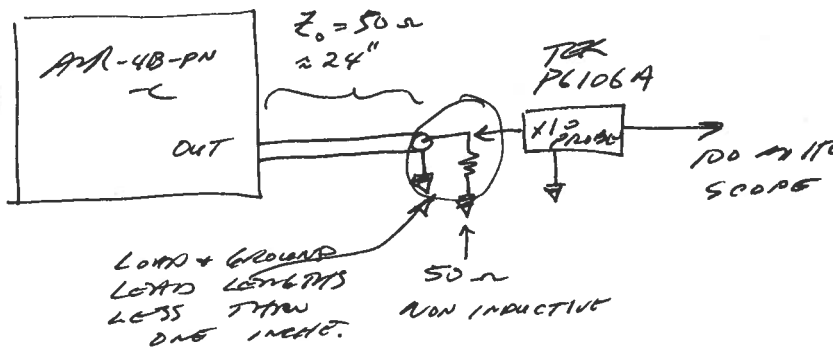 AVR-4B-PN
-C
OUT
Z₀ = 50 Ω
≈ 24"
TEK
P6106A
X10
PROBE
100 MHz
SCOPE
LOAD + GROUND
LEAD LENGTHS
LESS THAN
ONE INCHE.
50 Ω
NON INDUCTIVE